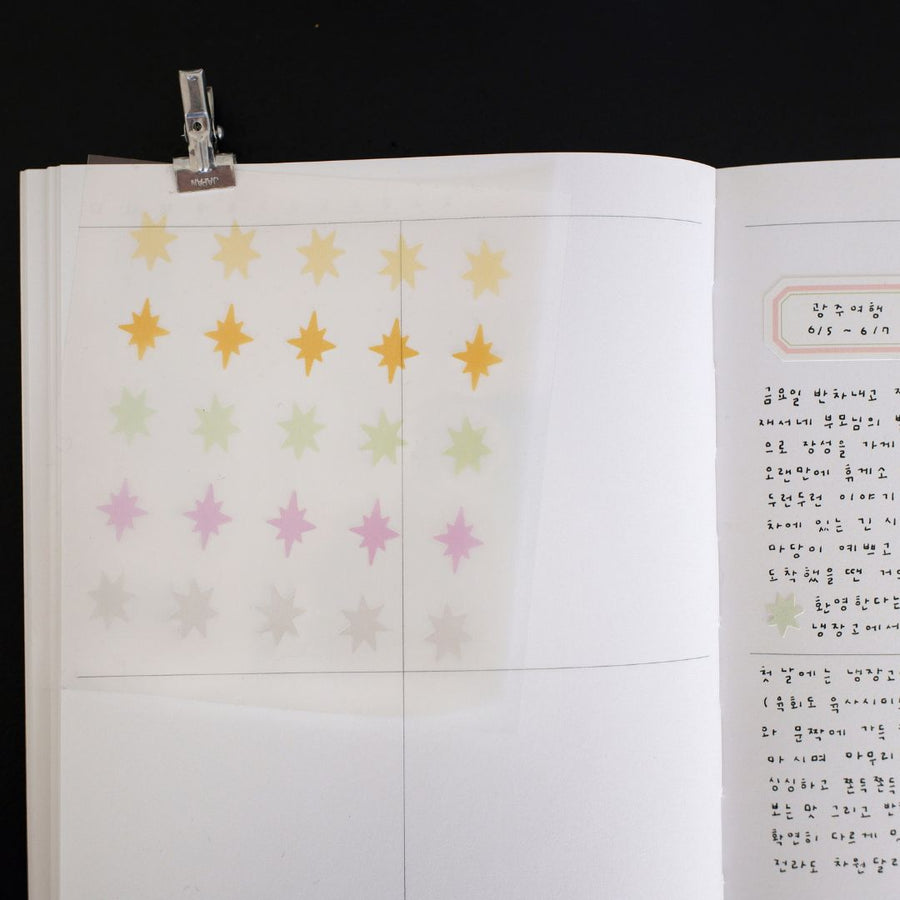 JAPAN
광주여행
6/5 ~ 6/7
금요일 반차내고
재서네 부모님의
으로 장성을 가게
오랜만에 휴게소
두런두런 이야기
차에 있는 긴 시
마당이 예쁘고
도착했을 땐 거
환영한다는
냉장고에서
첫날에는 냉장고
(육회도 육사시미
와 문짝에 가득
마시며 마무리
싱싱하고 쫀득쫀득
보는 맛 그리고 반
확연히 다르게
전라도 차원달라